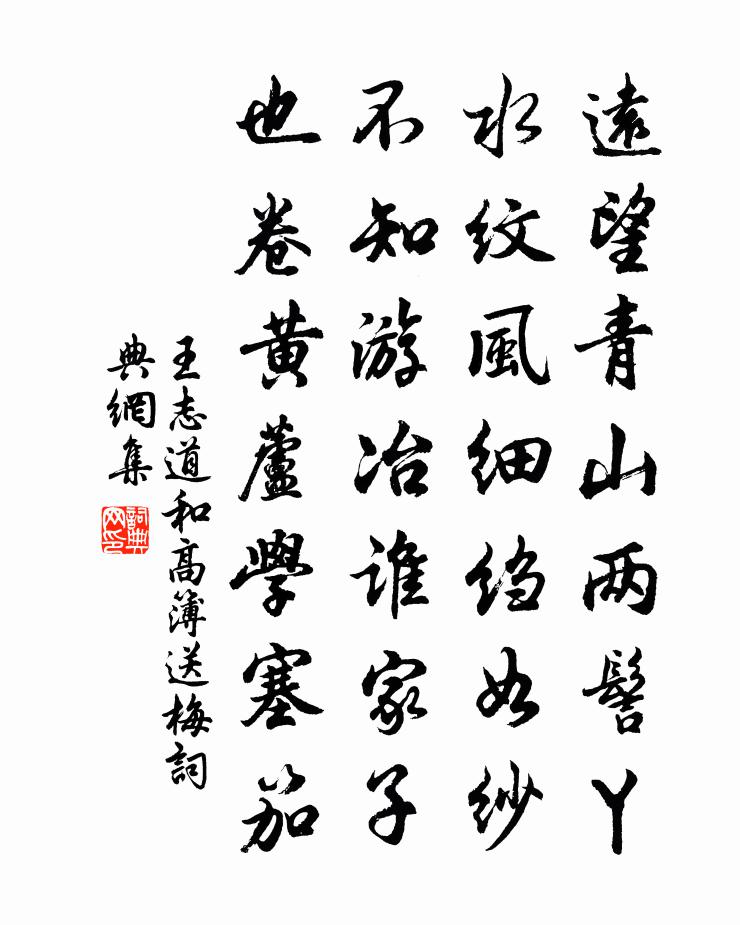 遠望青山两髻丫
水紋風細绉如紗
不知游冶誰家子
也卷黄蘆學塞笳
王志道和高簿送梅詞
典網集
詞典
网印